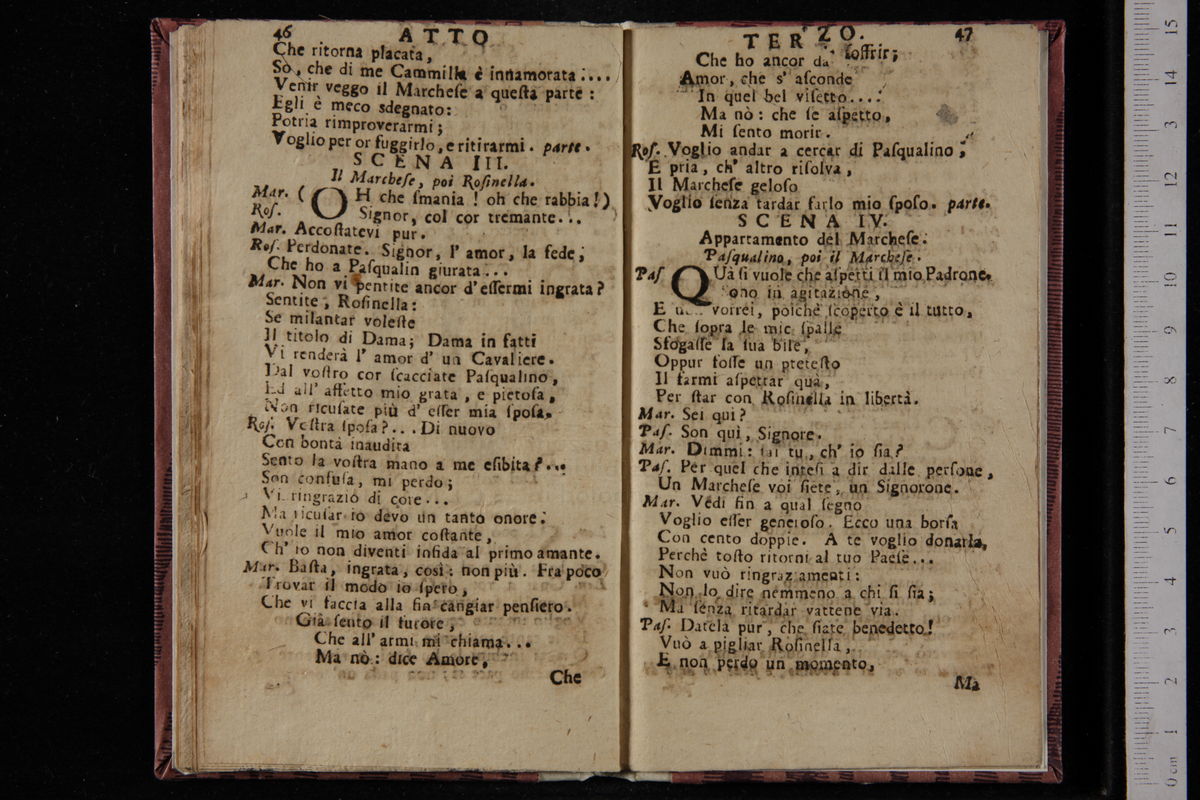 46 ATTO
Che ritorna placata,
Sò, che di me Cammilla è innamorata....
Venir veggo il Marcheſe a queſta parte:
Egli è meco sdegnato:
Potria rimproverarmi;
Voglio per or fuggirlo, e ritirarmi. parte.
SCENA III.
Il Marcheſe, poi Roſinella.
Mar. (OH che ſmania! oh che rabbia!)
Roſ. Signor, col cor tremante...
Mar. Accoſtatevi pur.
Roſ. Perdonate. Signor, l' amor, la fede;
Che ho a Paſqualin giurata...
Mar. Non vi pentite ancor d'eſſermi ingrata?
Sentite, Roſinella:
Se milantar voleſte
Il titolo di Dama; Dama in fatti
Vi renderà l' amor d' un Cavaliere.
Dal voſtro cor ſcacciate Paſqualino,
Ed all' affetto mio grata, e pietoſa,
Non ricuſate più d' eſſer mia ſpoſa.
Roſ. Voſtra ſpoſa?... Di nuovo
Con bontà inaudita
Sento la voſtra mano a me eſibita?...
Son confuſa, mi perdo;
Vi ringrazio di core...
Ma ricuſar io devo un tanto onore:
Vuole il mio amor coſtante,
Ch' io non diventi infida al primo amante.
Mar. Baſta, ingrata, così: non più. Fra poco
Trovar il modo io ſpero,
Che vi faccia alla fin cangiar penſiero.
Già ſento il furore,
Che all' armi mi chiama...
Ma nò: dice Amore,
Che
TERZO. 47
Che ho ancor da ſoffrir;
Amor, che s' aſconde
In quel bel viſetto....
Ma nò: che ſe aſpetto,
Mi ſento morir.
Roſ. Voglio andar a cercar di Paſqualino;
E pria, ch' altro riſolva,
Il Marcheſe geloſo
Voglio ſenza tardar farlo mio ſpoſo. parte.
SCENA IV.
Appartamento del Marcheſe.
Paſqualino, poi il Marcheſe.
Paſ QUà ſi vuole che aſpetti il mio Padrone.
Sono in agitazione,
E non vorrei, poichè ſcoperto è il tutto,
Che ſopra le mie ſpalle
Sfogaſſe la ſua bile,
Oppur foſſe un preteſto
Il farmi aſpettar quà,
Per ſtar con Roſinella in libertà.
Mar. Sei qui?
Paſ. Son quì, Signore.
Mar. Dimmi: ſai tu, ch' io ſia?
Paſ. Per quel che inteſi a dir dalle perſone,
Un Marcheſe voi ſiete, un Signorone.
Mar. Vedi fin a qual ſegno
Voglio eſſer generoſo. Ecco una borſa
Con cento doppie. A te voglio donarla,
Perchè toſto ritorni al tuo Paeſe...
Non vuò ringraziamenti:
Non lo dire nemmeno a chi ſi ſia;
Ma ſenza ritardar vattene via.
Paſ. Datela pur, che ſiate benedetto!
Vuò a pigliar Roſinella,
E non perdo un momento,
Ma
15
14
13
12
11
10
9
8
7
6
5
4
3
2
1
0 cm